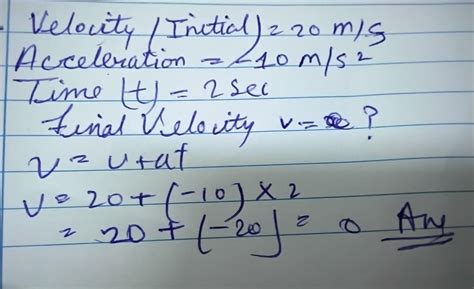 Velocity (Initial) = 20 m/s
Acceleration = -10 m/s2
Time (t) = 2 sec
Final Velocity v = ?
v = u + at
v = 20 + (-10) × 2
= 20 + (-20) = 0 Ans